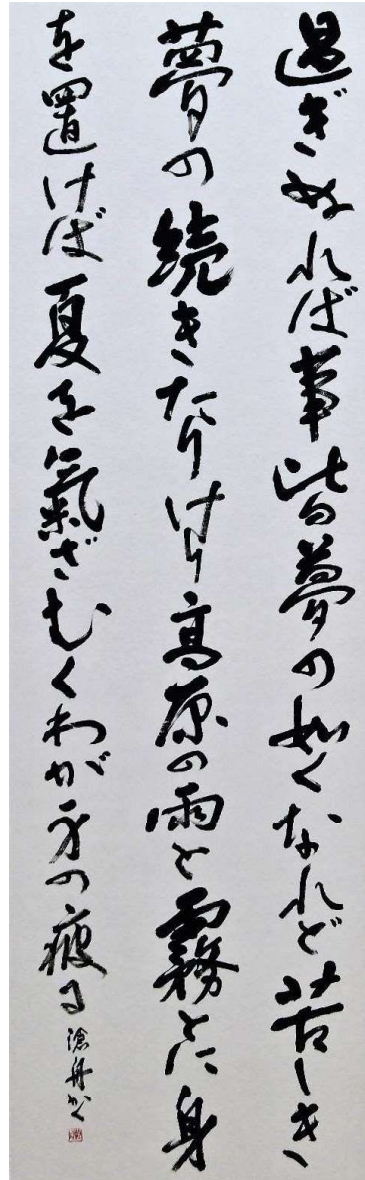 過ぎぬれば事皆夢の如くなれど苦しき
夢の続きたりけり高原の雨と霧とに身
を置けば夏を氣ざむくわが身の疲る
滄舟かく